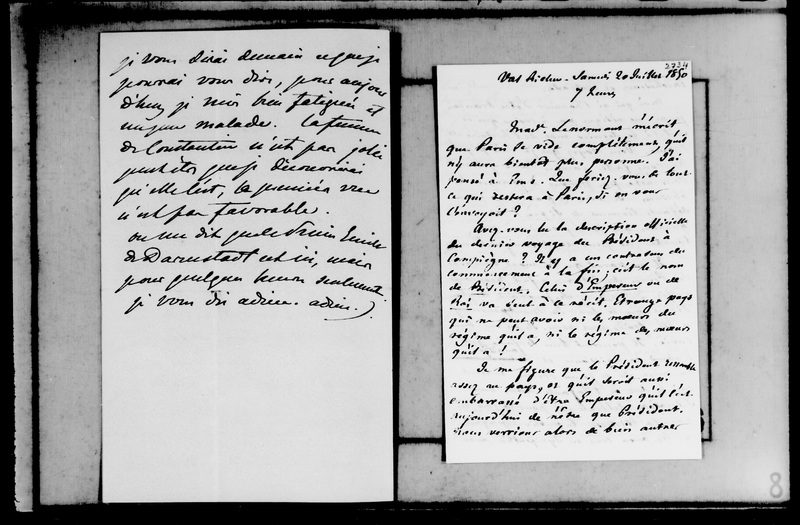 je vous dirai demain ce que je
pourrai vous dire, pour aujour
d'huy je suis bien fatiguée et
un peu malade. La femme
de Constantin n'est pas jolie
peut être que je découvrirai
qu'elle l'est, la première vue
n'est pas favorable.
on me dit que le Prince Emile
de Darmstadt est ici, mais
pour quelques heures seulement.
je vous dis adieu. adieu.)
2724
Val Richer - Samedi 20 Juillet 1850
7 heures
Mad. Lenormant m'écrit
que Paris se vide complètement, qu'il
n'y aura bientôt plus personne. J'ai
pensé à Ems. Que feriez-vous de tout
ce qui restera à Paris, si on vous
l'envoyait ?
Avez-vous lu la description officielle
du dernier voyage du Président à
Compiègne ? Il y a un contresens du
commencement à la fin ; c'est le nom
de Président. Celui d'Empereur ou de
Roi va seul à ce récit. Etrange pays
qui ne peut avoir ni les mœurs du
régime qu'il a, ni le régime des mœurs
qu'il a !
Je me figure que le Président ressemble
assez au pays, et qu'il serait aussi
embarrassé d'être Empereur qu'il l'est
aujourd'hui de n'être que Président.
Nous verrions alors de bien autres
8